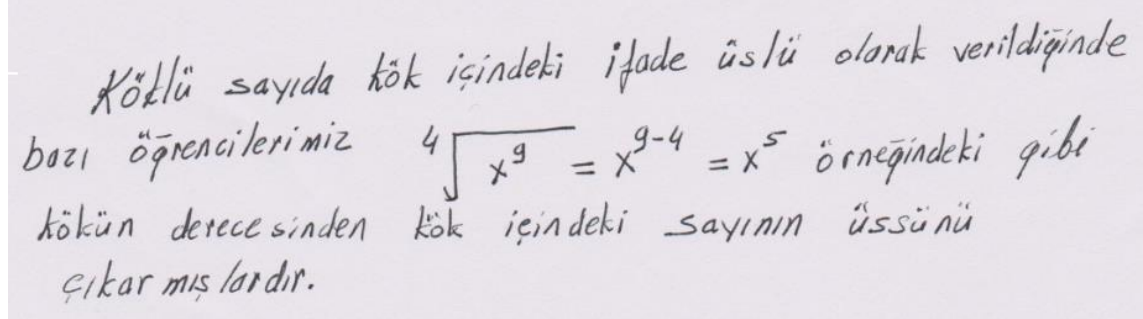 Köklü sayıda kök içindeki ifade üslü olarak verildiğinde
bazı öğrencilerimiz ⁴√x⁹ = x⁹⁻⁴ = x⁵ örneğindeki gibi
kökün derecesinden kök içindeki sayının üssünü
çıkarmışlardır.